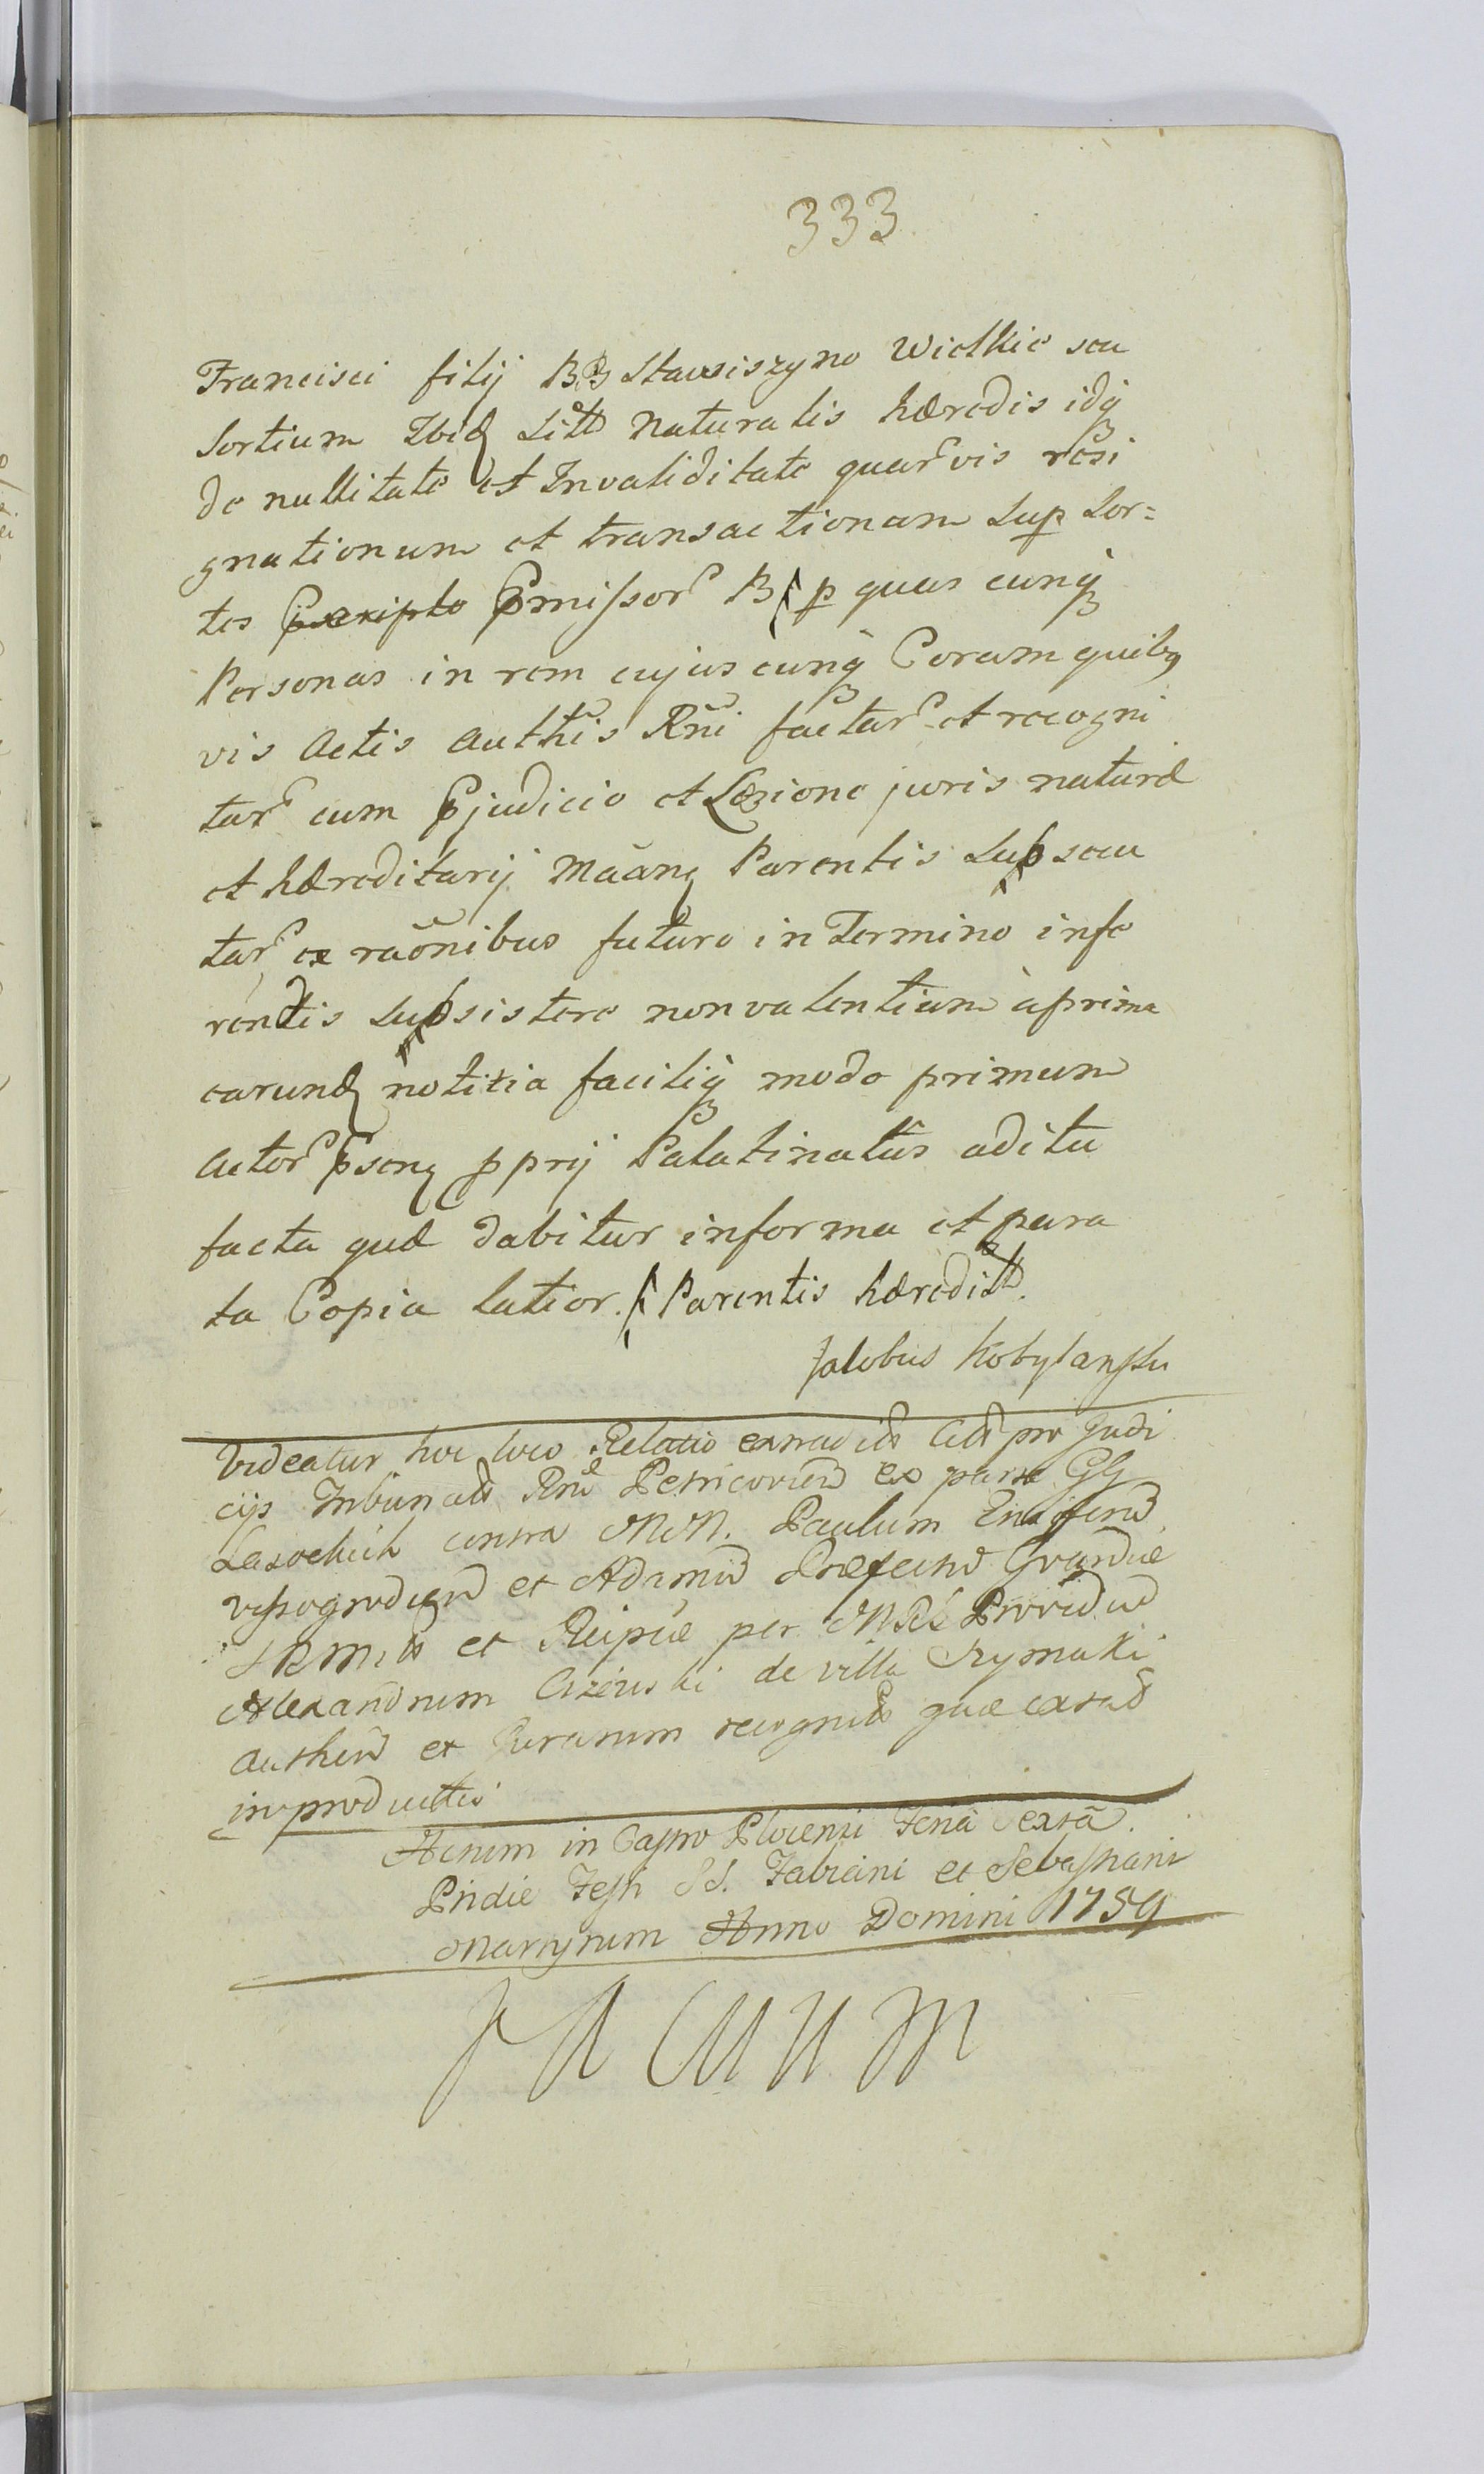 333
Francisci filij BB Stawiszyno Wielkie seu
Sortium Ibid Sitt Naturalis hæredis idq
de nullitate et Invaliditate quarvis resi
gnationum et transactionum Sup Sor=
tes Pmissor B p quas cunq
Personas in rem cujus cunq Coram quibq
vis Actis Authis Rni factar et recogni
tar cum Pjudicio et Læzione juris naturæ
et hæreditarij Maang Parentis Sub seu
tar ex raonibus futuro in Termino infe
rendis Subsistere non valentium a prima
earund notitia faciliq modo primum
Actor Pseng pprij Palatinatûs aditu
facta quæ dabitur in forma et para
ta Copia latior. Parentis hæreditt.
Jalobus Kobylanski
Videatur hoc loco Relatio extradit Citt pro Judi
cijs Tribunalit Rni Petricovien ex parte GG
Lasockich contra MM. Paulum Ensiferum
Vyssogrodien et Adamum Præfectum Gvardiæ
SRMtis et Reipuæ per Providum
Alexandrum de villa Szymaki
Authen et Juratum recognit quæ extat
in productis
Actum in Castro Plocensi Feria Sexta.
Pridie Festi SS. Fabiani et Sebastiani
Martyrum Anno Domini 1759
Vacuum